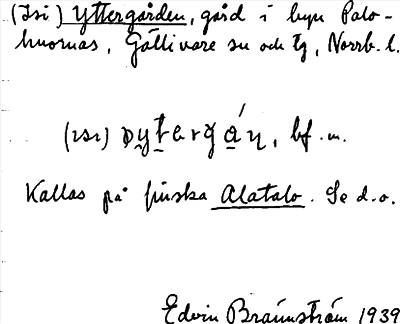 (Isi) Yttergården, gård i byn Palo-
huornas, Gällivare sn och tg, Norrb. l.
bf. m.
Kallas på finska Alatalo. Se d.o.
Edvin Brännström 1939